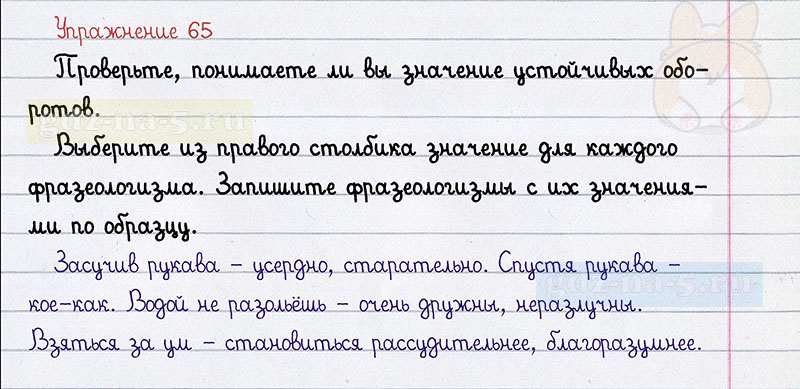 Упражнение 65
Проверьте, понимаете ли вы значение устойчивых обо-
ротов.
gdz-na-5.ru
Выберите из правого столбика значение для каждого
фразеологизма. Запишите фразеологизмы с их значения-
ми по образцу.
Засучив рукава – усердно, старательно. Спустя рукава –
gdz-na-5.ru
кое-как. Водой не разольёшь – очень дружны, неразлучны.
Взяться за ум – становиться рассудительнее, благоразумнее.